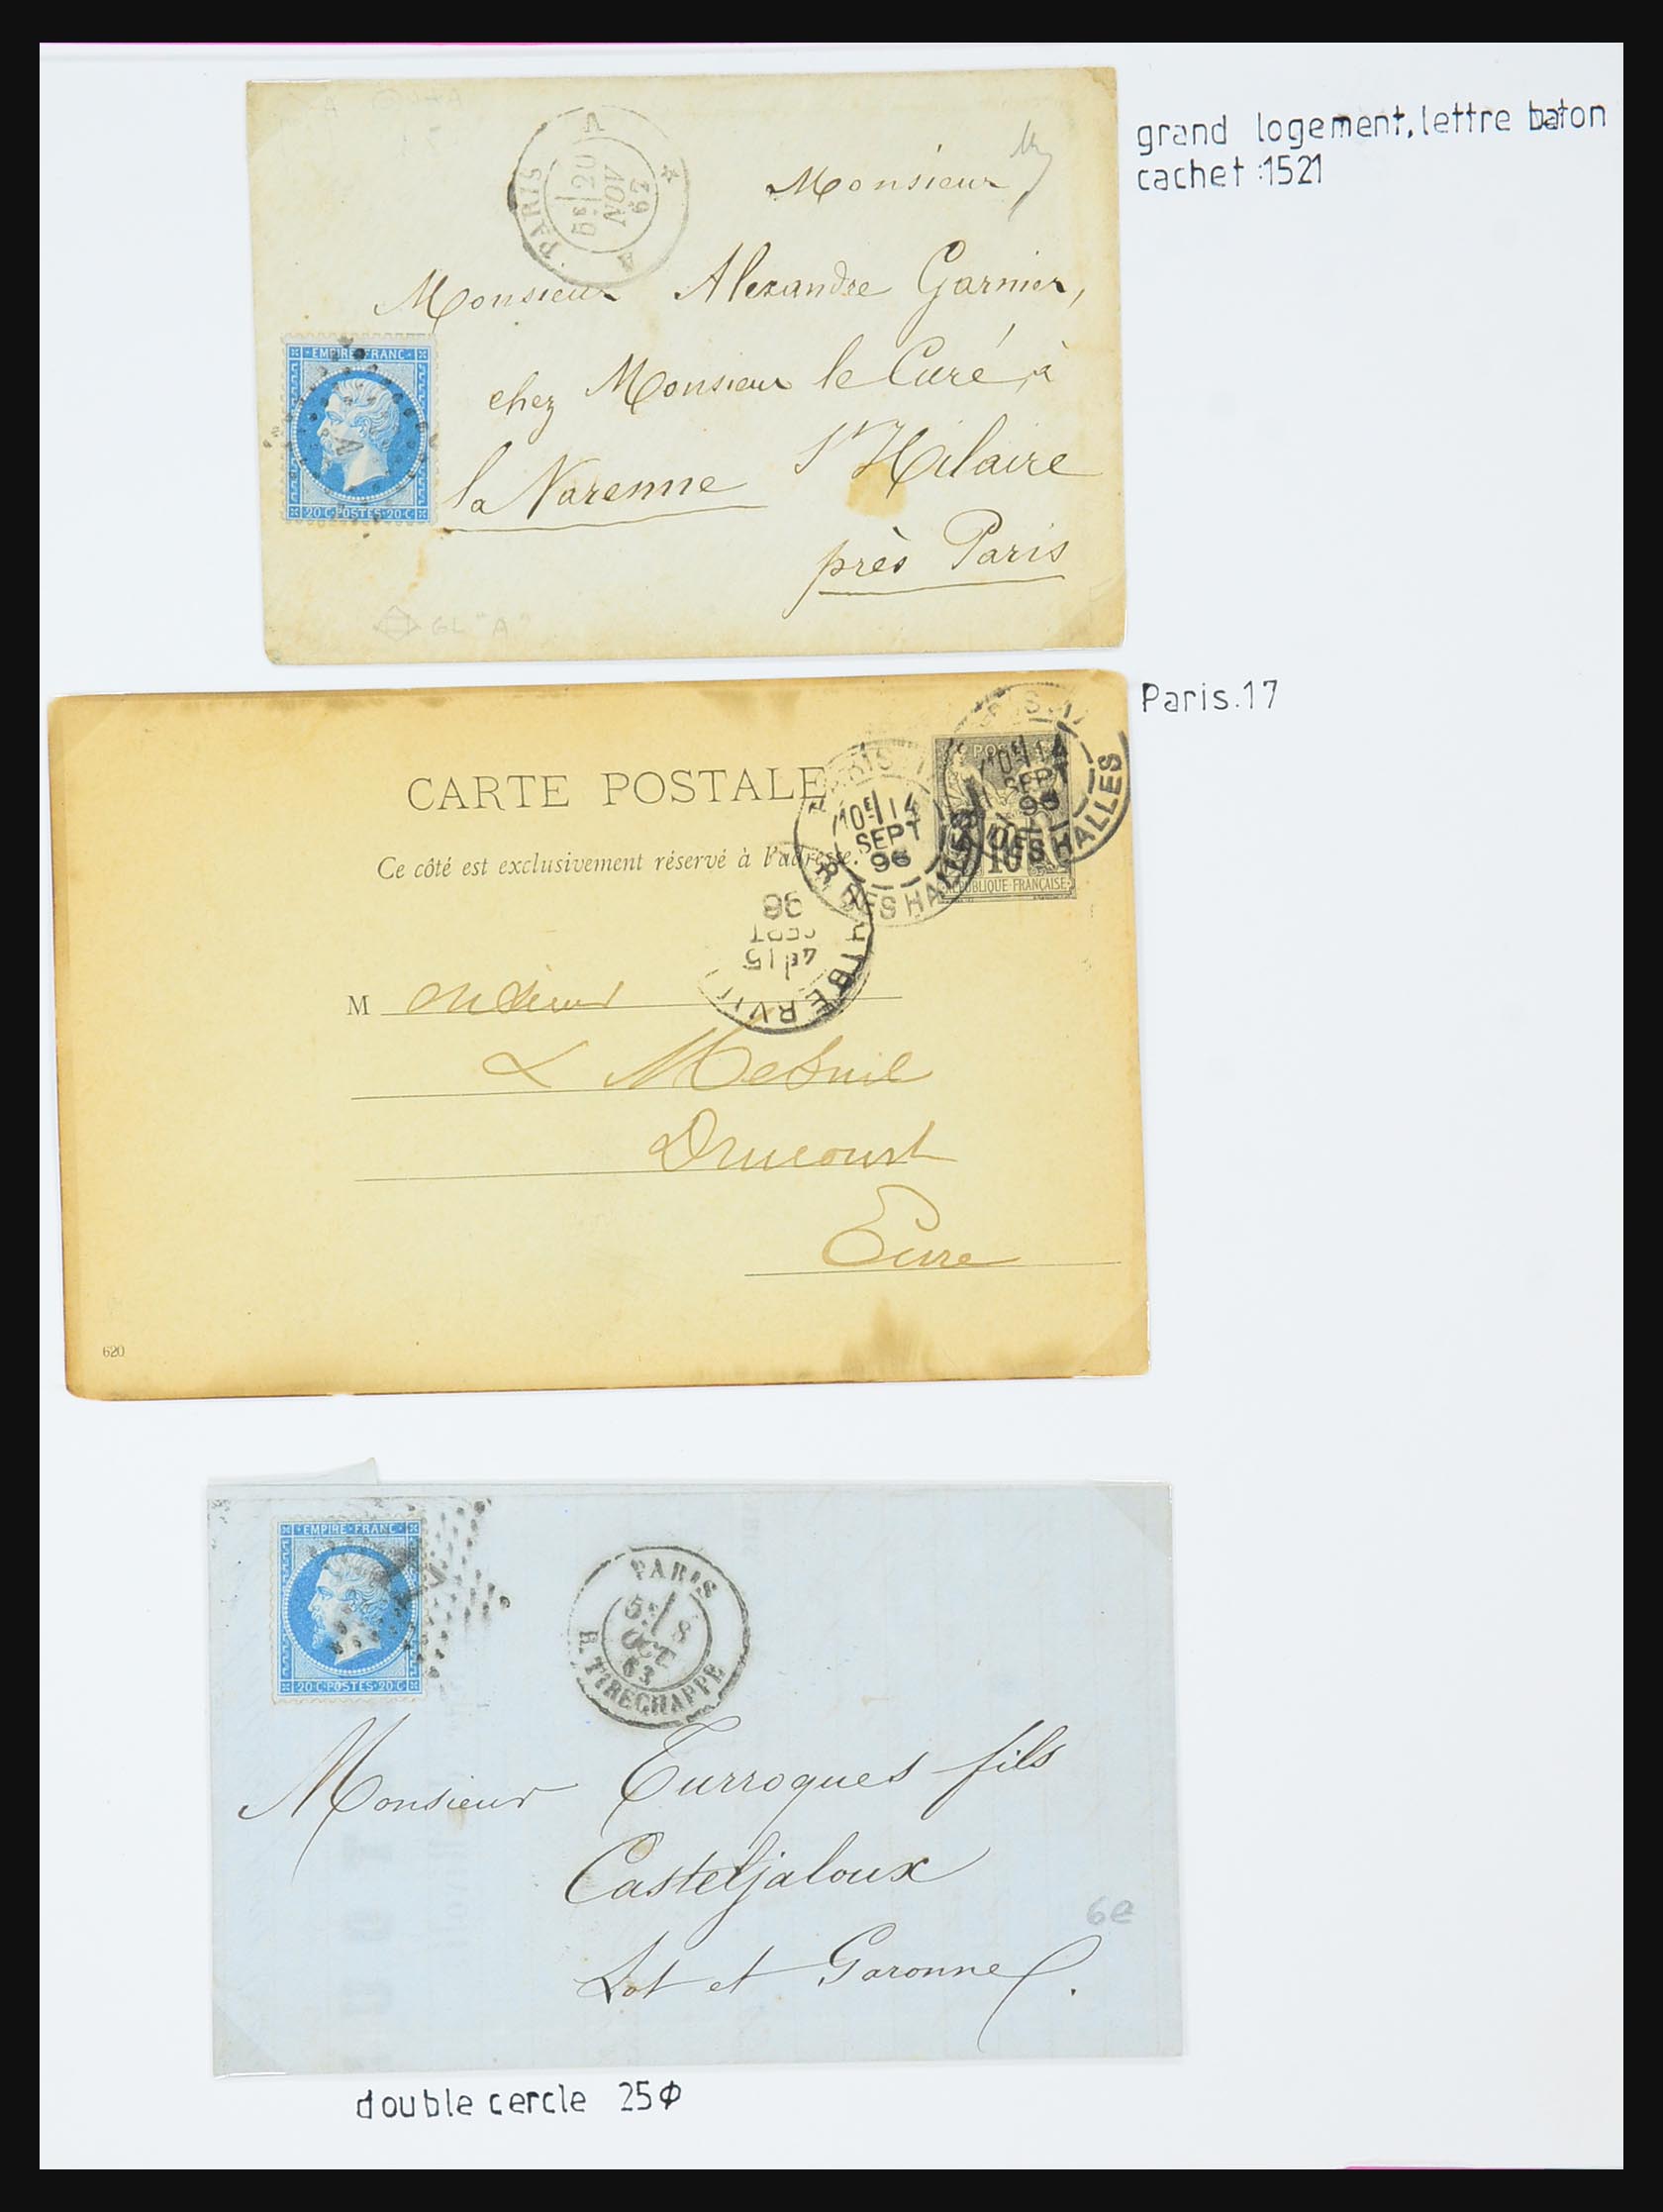 grand logement, lettre baton
cachet :1521
PARIS
A
A
5E 20
NOV
62
Monsieur
Monsieur Alexandre Garnier,
chez Monsieur le Curé, à
la Varenne St Hilaire
près Paris
EMPIRE FRANC
A
20 C POSTES 20 C
GL "A"
Paris.17
CARTE POSTALE
Ce côté est exclusivement réservé à l'adresse.
PARIS
10E 14
SEPT
96
R. DES HALLES
10E 14
SEPT
96
R. DES HALLES
10
REPUBLIQUE FRANÇAISE
4E 15
SEPT
96
THIBERVI
M onsieur
Mesnil
Drucourt
Eure
620
EMPIRE FRANC
20 C POSTES 20 C
PARIS
5E 8
OCT
63
R. TIRECHAPPE
Monsieur Turroques fils
Casteljaloux
Lot et Garonne.
6e
double cercle 25Φ